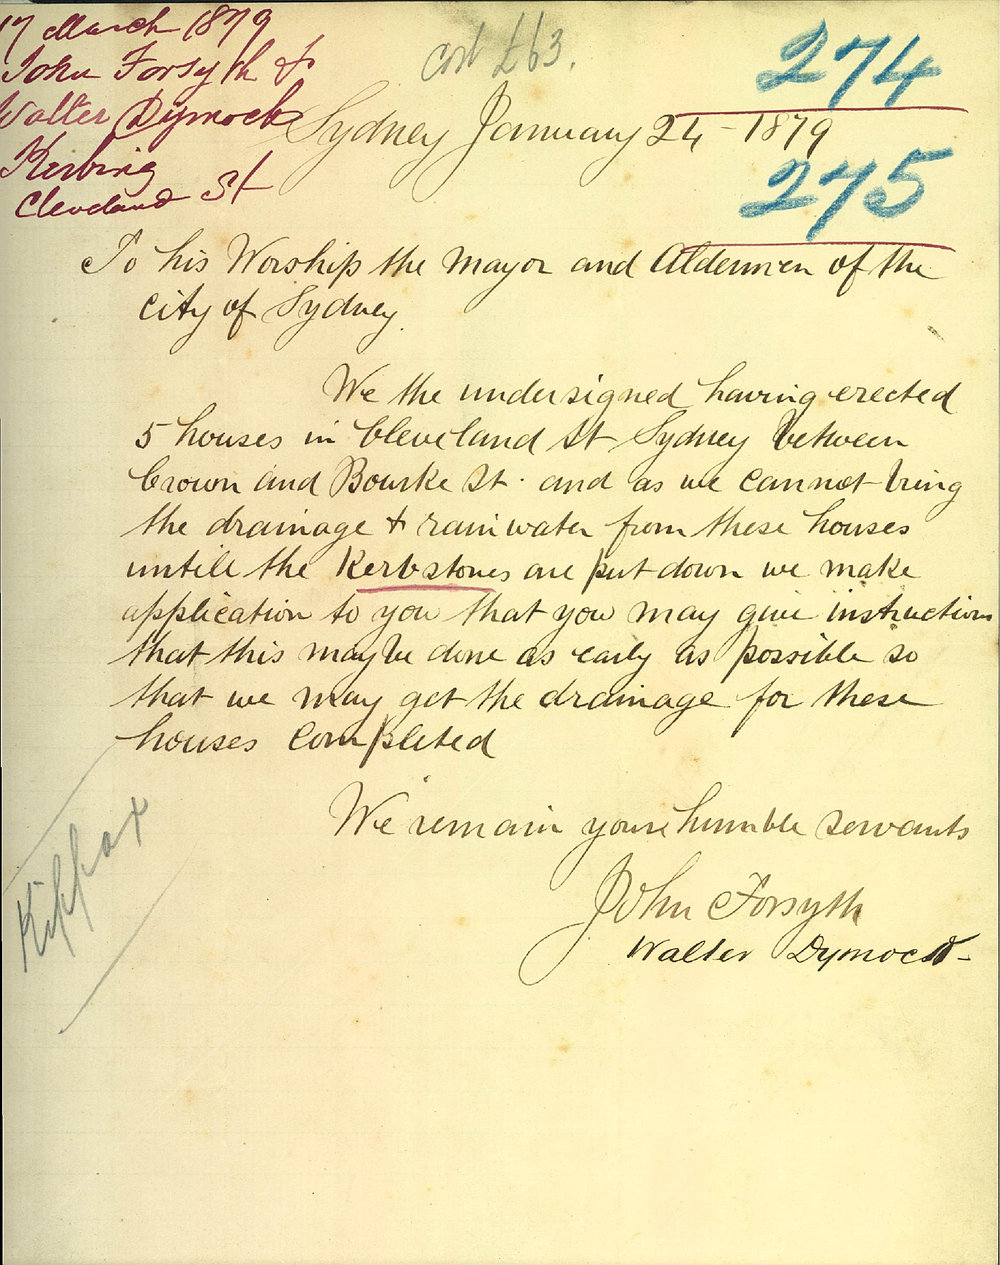 17 March 1879
John Forsyth &
Walter Dymock
Kerbing
Cleveland St
cost £63.
274
275
Sydney January 24 - 1879
To his Worship the Mayor and Aldermen of the
City of Sydney.
We the undersigned having erected
5 houses in Cleveland St Sydney between
Crown and Bourke St. and as we cannot bring
the drainage & rainwater from these houses
untill the Kerbstones are put down we make
application to you that you may give instructions
that this may be done as early as possible so
that we may get the drainage for these
houses completed
We remain your humble servants
John Forsyth
Walter Dymock
Kippax